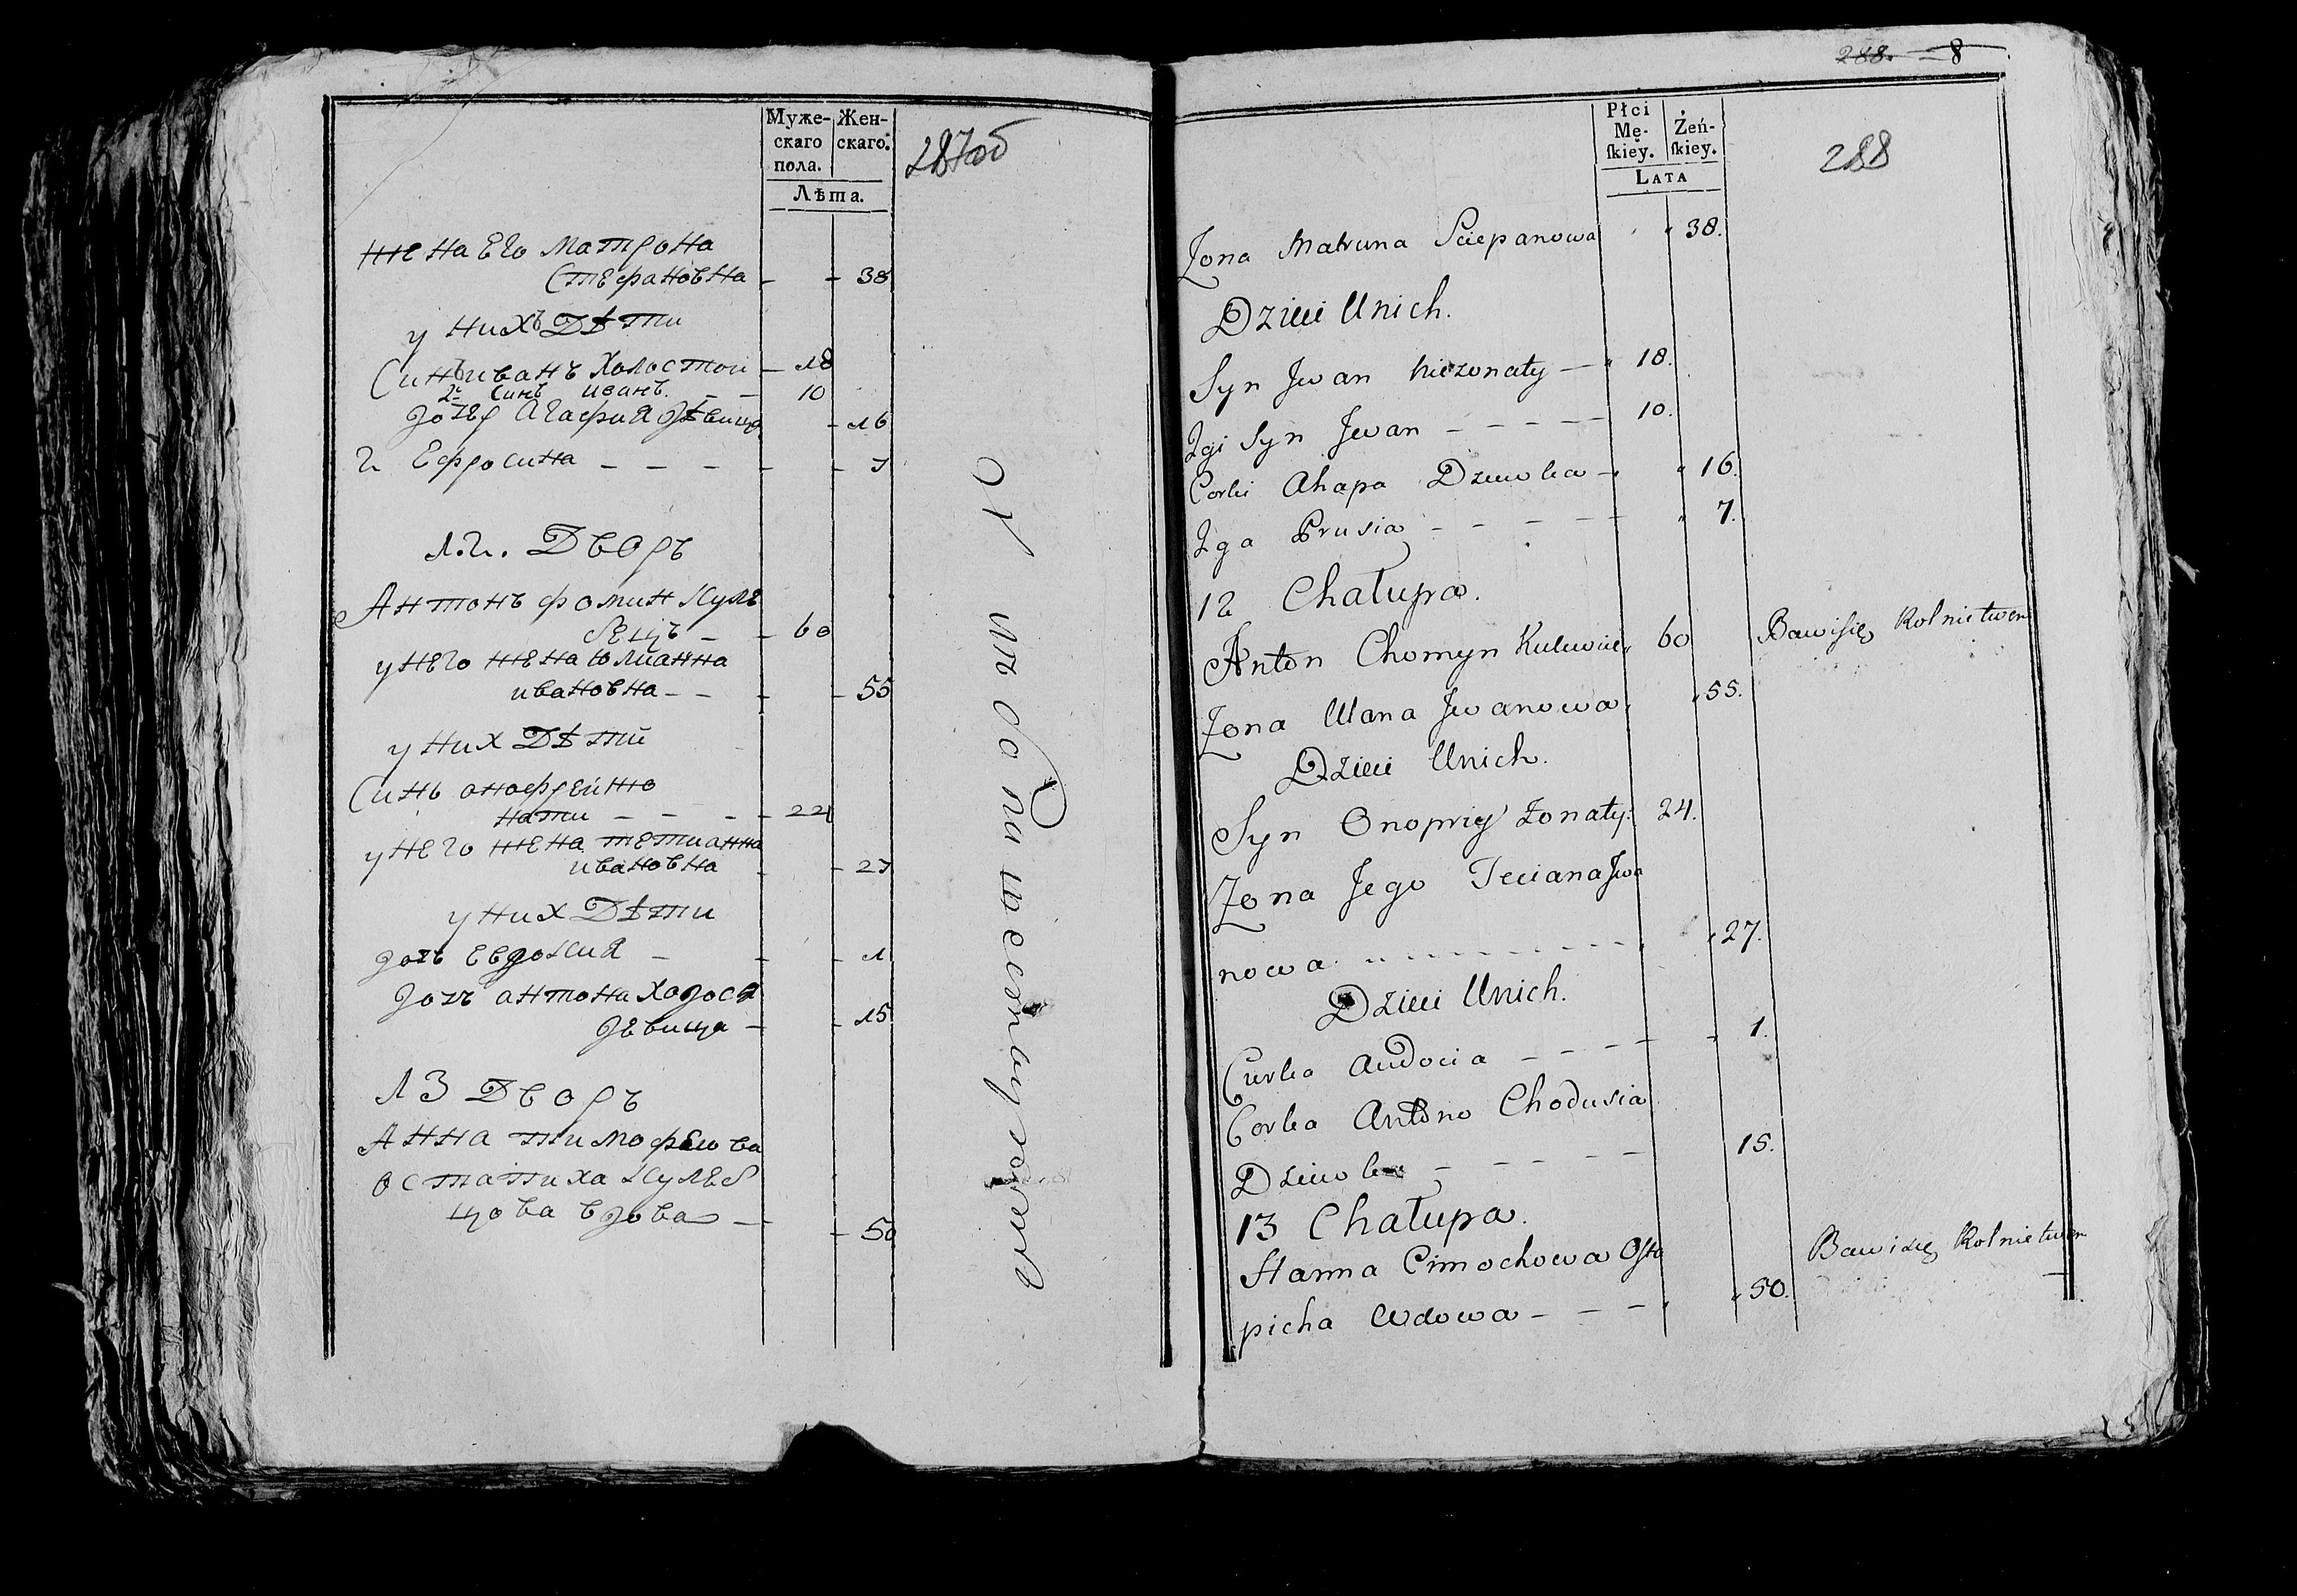 Муже-
скаго
пола.
Жен-
скаго.
Лѣта.
287об
жена Его матрона
Стефановна - - 38
у нихъ Дѣти
Синъ иванъ Холостои - 18
2й Синъ иванъ. - - 10
дочер Агафия дѣвица - 16
2 Ефросина - - - - - 7
12. Дворъ
Антонъ фомин Куле
бецъ - - 60
у него жена юлианна
ивановна - - - - 55
у них Дѣти
Синъ анофреи жо
нати - - - - 24
у него жена тетианна
ивановна - - 27
у них Дѣти
дочъ Евдокия - - - 1
дочъ антона ходося
девица - - 15
13 Дворъ
Анна тимофеюва
остапиха Кулеб
цова вдова - - 50
288. - 8
Płci
Mę-
ſkiey.
Żeń-
ſkiey.
Lata
288
Zona Matruna Sciepanowa 38.
Dzieci Unich.
Syn Jwan niezonaty - 18.
2gi Syn Jwan - - - - 10.
Corki Ahapa Dziewka - 16.
2ga Prusia - - - - - 7.
12 Chałupa.
Anton Chomyn Kulewiec 60 Bawisię Rolnictwem
Zona Ulana Jwanowa 55.
Dzieci Unich.
Syn Onopriy Zonaty. 24.
Zona Jego Teciana Jwa
nowa - - - - - - 27.
Dzieci Unich.
Curka Audocia - - - - - 1.
Corka Antono Chodusia
Dziewka - - - - - 15.
13 Chałupa.
Hanna Cimochowa Osta Bawisię Rolnictwem
picha Wdowa - - - 50.